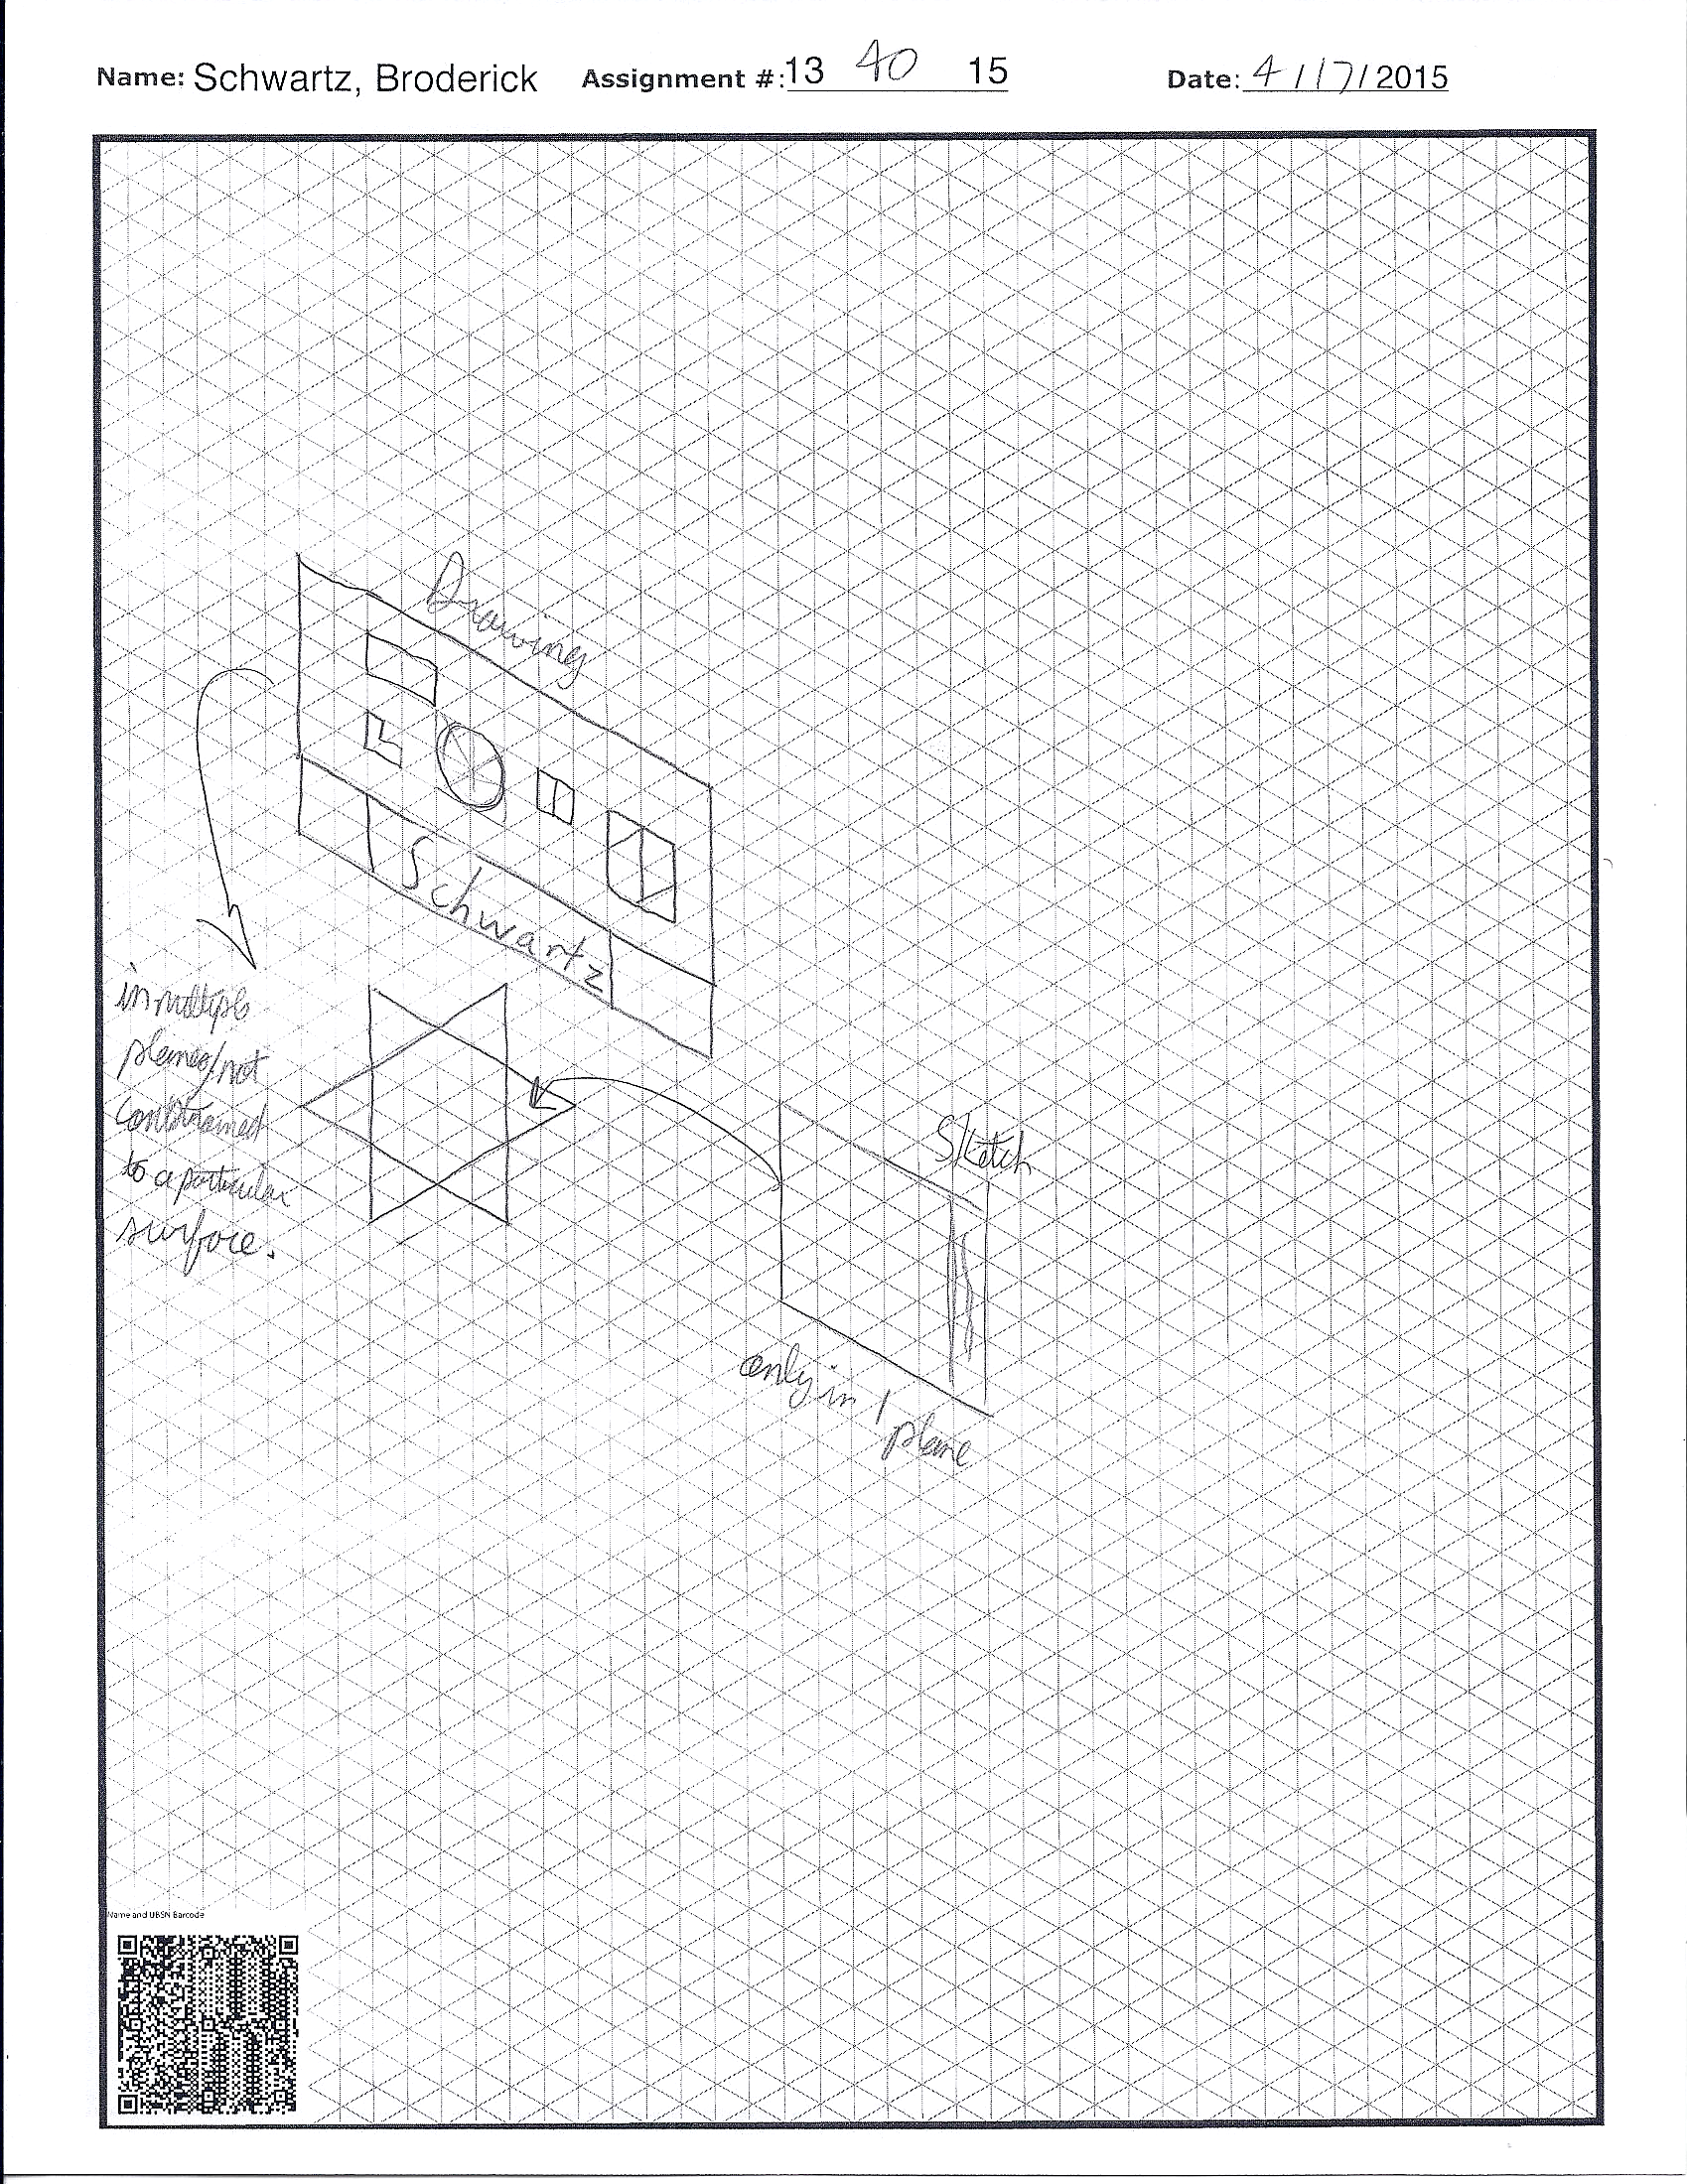 Name: Schwartz, Broderick Assignment #: 13 40 15 Date: 4/17/2015
Drawing
Schwartz
in multiple
planes/not
constrained
to a particular
surface.
Sketch
only in 1
plane
Name and UBSN Barcode